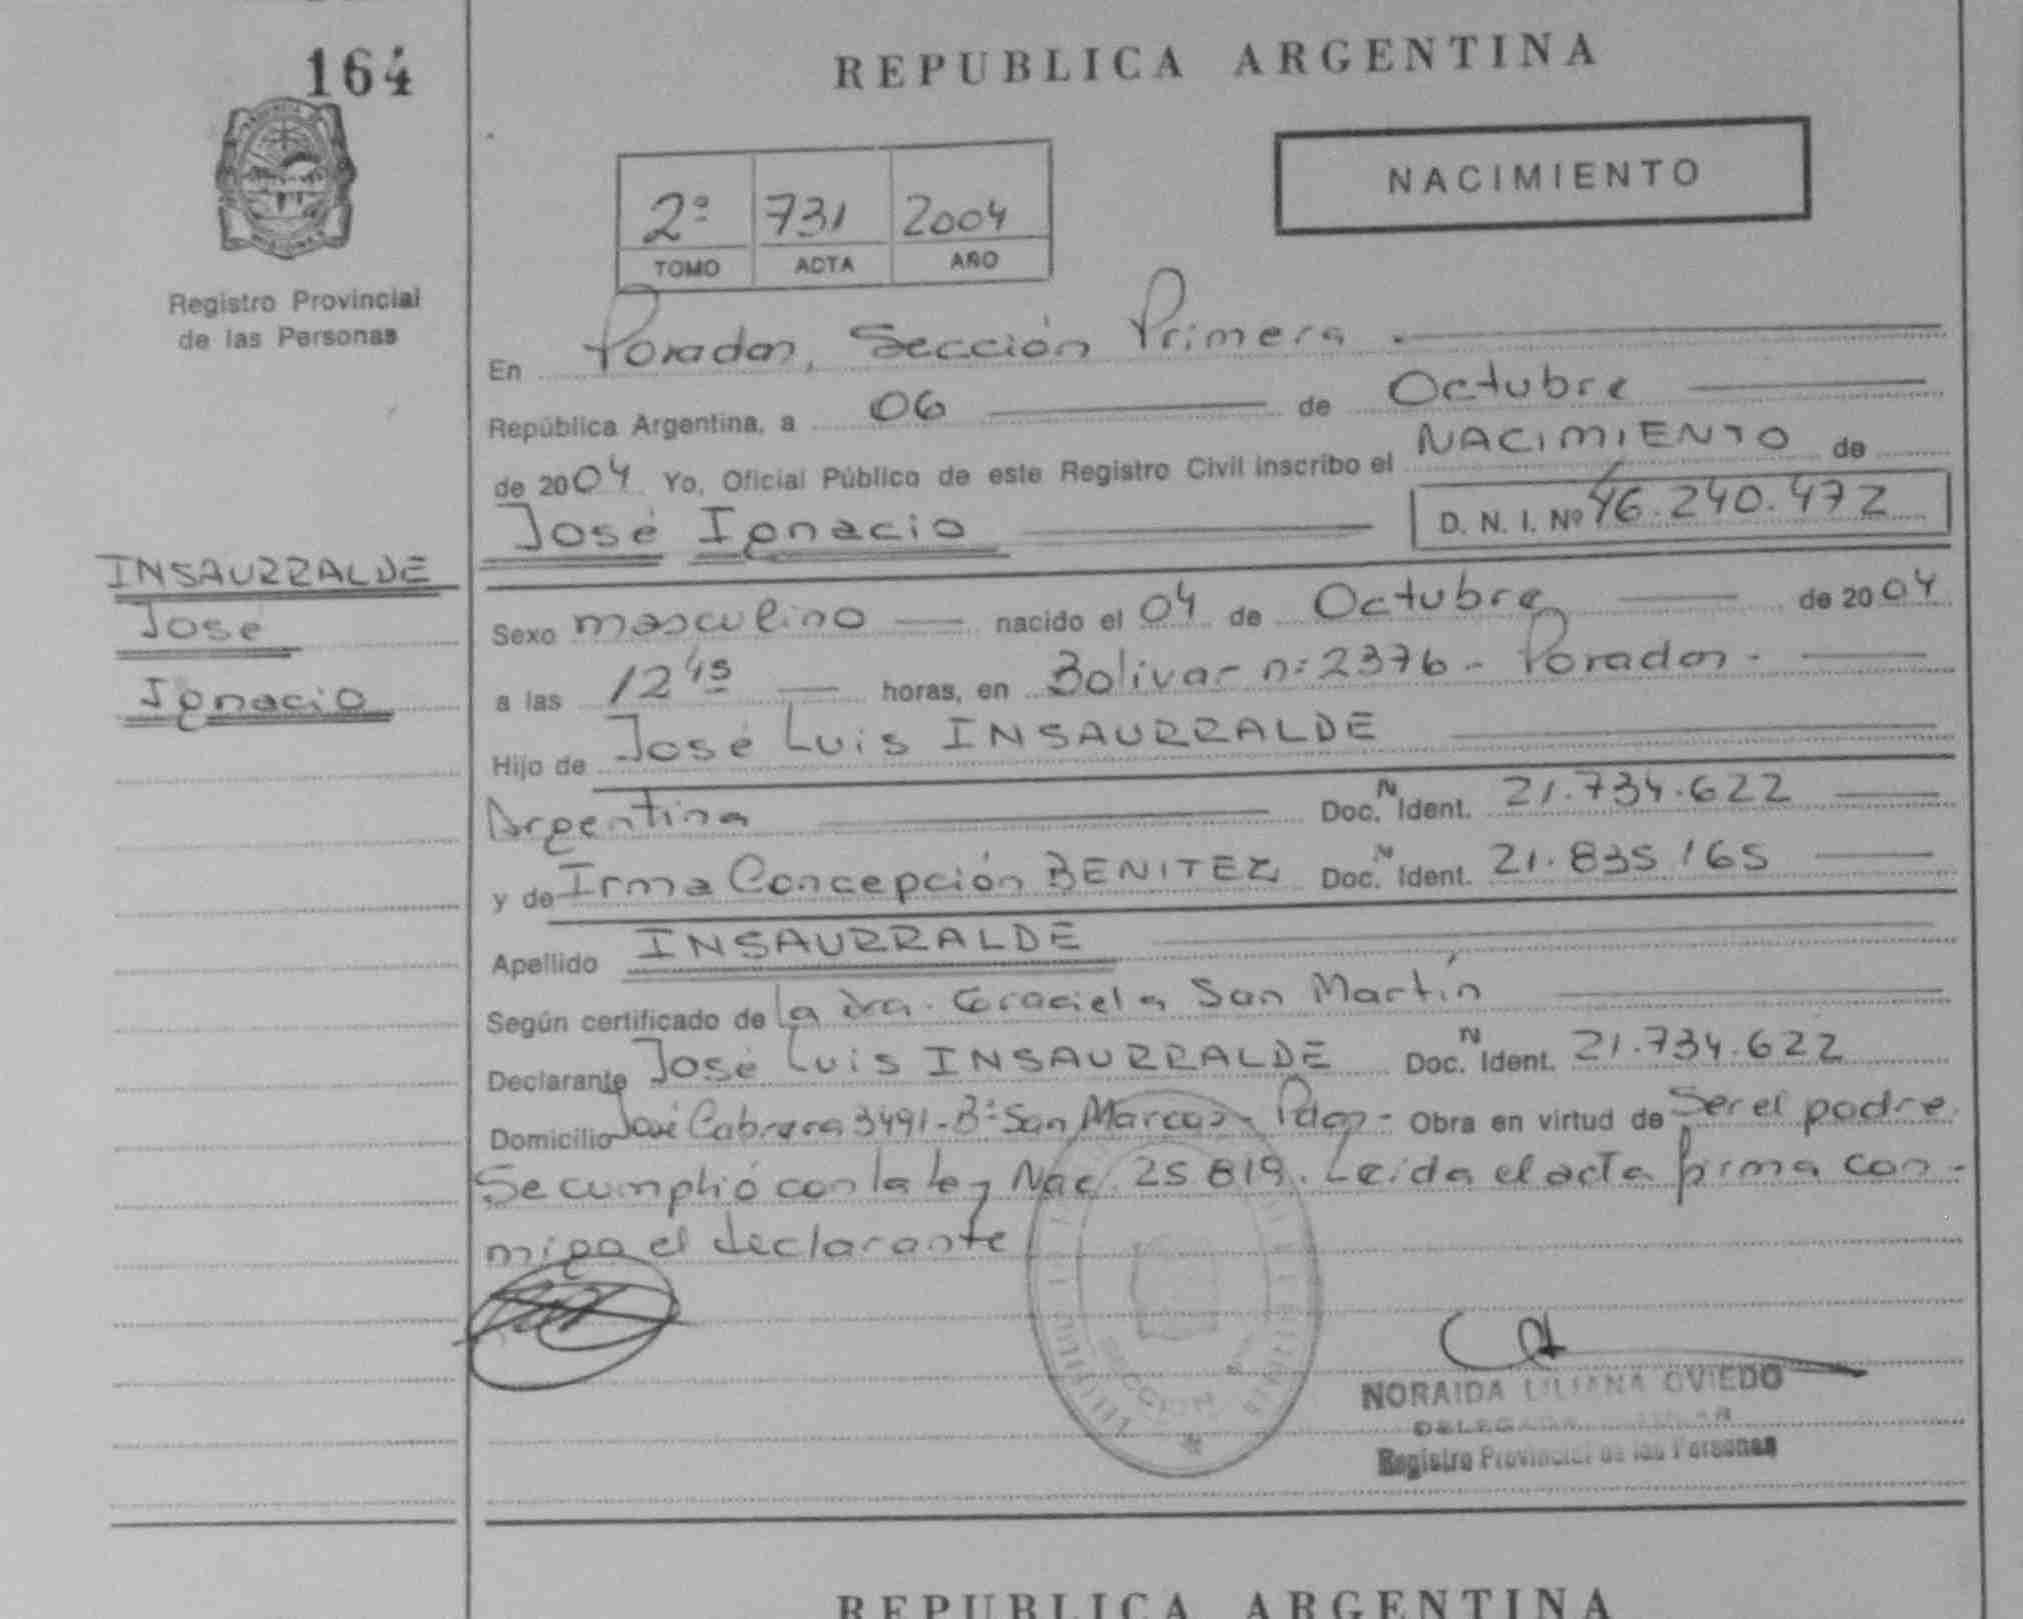 164
REPUBLICA ARGENTINA
NACIMIENTO
2º 731 2004
TOMO ACTA AÑO
Registro Provincial
de las Personas
En Posadas, Sección Primera .
República Argentina, a 06 de Octubre
de 2004 Yo, Oficial Público de este Registro Civil inscribo el NACIMIENTO de
José Ignacio D. N. I. Nº 46.240.472
INSAURRALDE
José
Ignacio
Sexo masculino nacido el 04 de Octubre de 2004
a las 12 45 horas, en Bolivar nº 2376 - Posadas -
Hijo de José Luis INSAURRALDE
Argentina Doc. N Ident. 21.734.622
y de Irma Concepción BENITEZ Doc. N Ident. 21.835.165
Apellido INSAURRALDE
Según certificado de la Dra. Graciela San Martín
Declarante José Luis INSAURRALDE Doc. N Ident. 21.734.622
Domicilio José Cabrera 3491 - Bº San Marcos - Pdas - Obra en virtud de Ser el padre.
Se cumplió con la ley Nac. 25 819. Leída el acta firma con-
migo el declarante
SECCION
NORAIDA LILIANA OVIEDO
DELEGADA
Registro Provincial de las Personas
REPUBLICA ARGENTINA